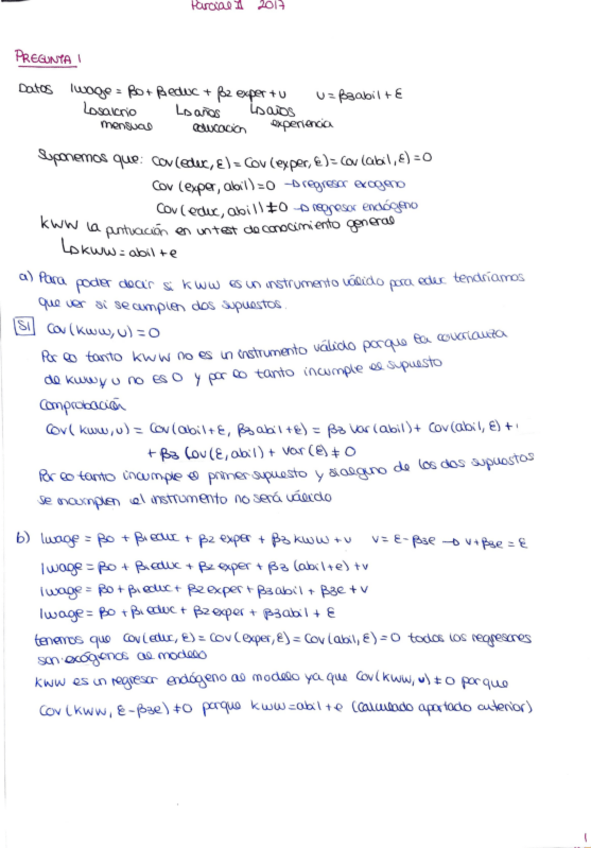 Parcial II 2017
PREGUNTA 1
Datos lwage = β0 + β1educ + β2 exper + u u = β3abil + ε
↳salario ↳años ↳años
mensual educación experiencia
Suponemos que: Cov(educ, ε) = Cov(exper, ε) = Cov(abil, ε) = 0
Cov (exper, abil) = 0 → regresor exógeno
Cov (educ, abil) ≠ 0 → regresor endógeno
KWW la puntuación en un test de conocimiento general
↳ KWW = abil + e
a) Para poder decir si KWW es un instrumento válido para educ tendríamos
que ver si se cumplen dos supuestos.
S1 Cov (kww, u) = 0
Por lo tanto KWW no es un instrumento válido porque la covarianza
de kww y u no es 0 y por lo tanto incumple el supuesto
Comprobación
Cov( kww, u) = Cov(abil + ε, β3 abil + ε) = β3 Var(abil) + Cov(abil, ε) +
+ β3 Cov(ε, abil) + Var(ε) ≠ 0
Por lo tanto incumple el primer supuesto y si alguno de los dos supuestos
se incumplen el instrumento no será válido
b) lwage = β0 + β1educ + β2 exper + β3 KWW + v v = ε - β3e → v + β3e = ε
lwage = β0 + β1educ + β2 exper + β3 (abil + e) + v
lwage = β0 + β1educ + β2 exper + β3abil + β3e + v
lwage = β0 + β1 educ + β2 exper + β3abil + ε
tenemos que Cov(educ, ε) = Cov(exper, ε) = Cov(abil, ε) = 0 todos los regresores
son exógenos al modelo
KWW es un regresor endógeno al modelo ya que Cov(KWW, v) ≠ 0 porque
Cov (KWW, ε - β3e) ≠ 0 porque KWW = abil + e (calculado apartado anterior)
1